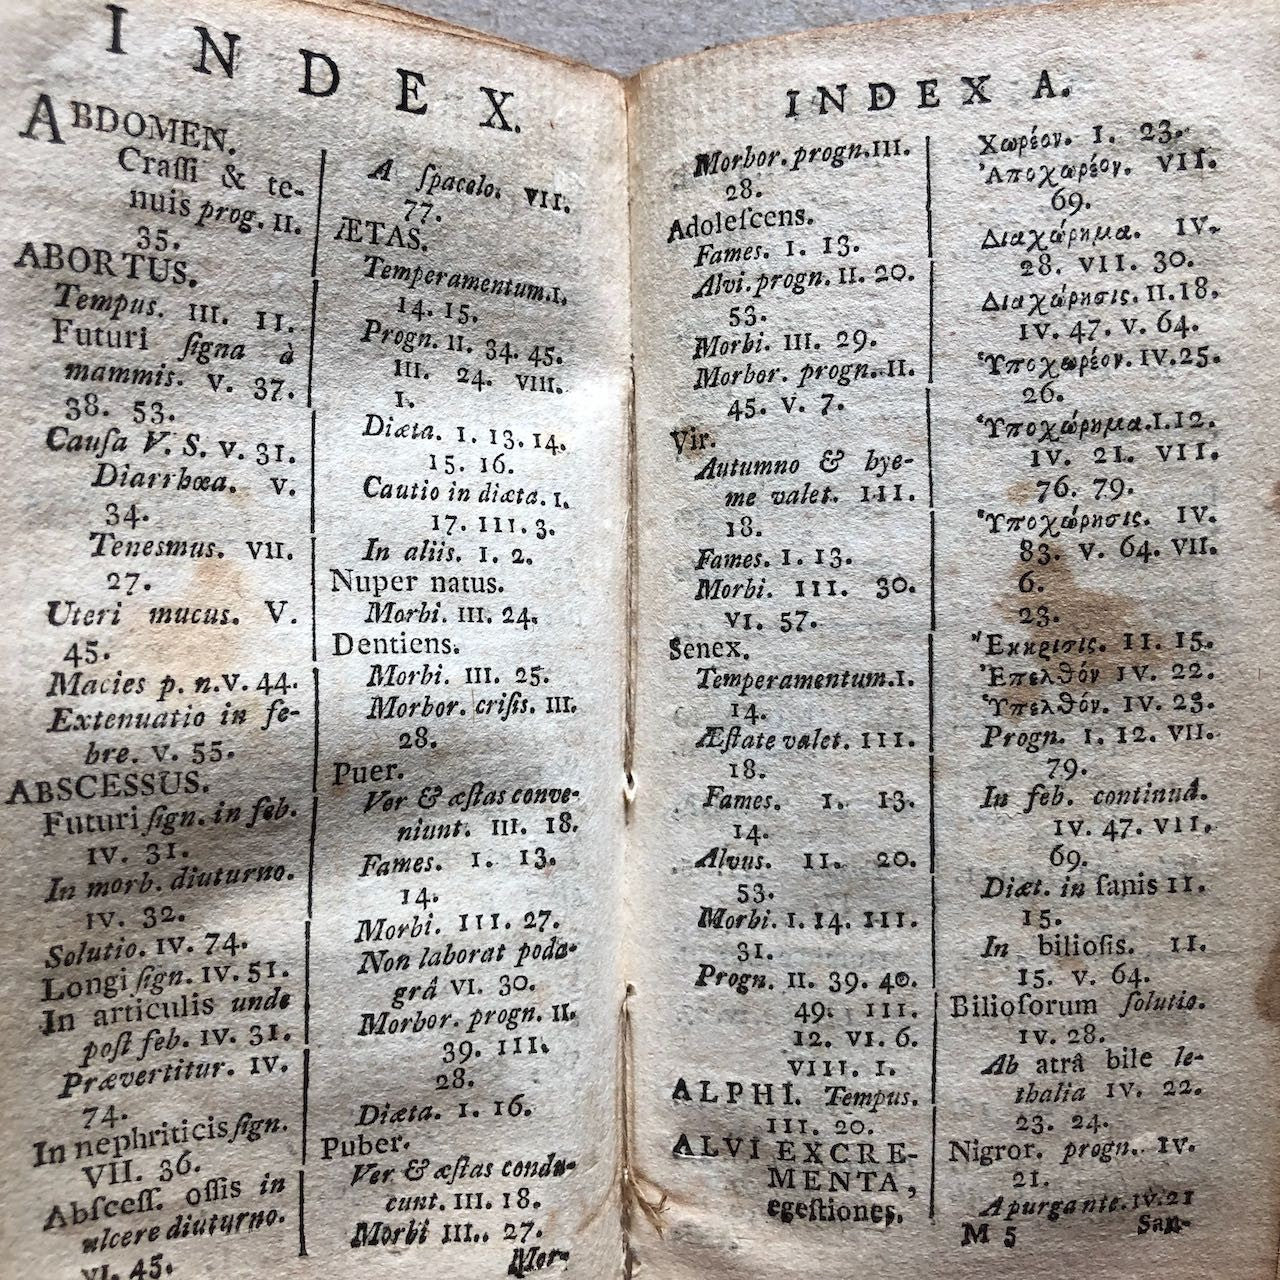 INDEX.
ABDOMEN.
Craſſi & te-
nuis prog. II.
35.
ABORTUS.
Tempus. III. II.
Futuri ſigna à
mammis. V. 37.
38. 53.
Cauſa V. S. V. 31.
Diarrhœa. V.
34.
Tenesmus. VII.
27.
Uteri mucus. V.
45.
Macies p. n. V. 44.
Extenuatio in fe-
bre. V. 55.
ABSCESSUS.
Futuri ſign. in feb.
IV. 31.
In morb. diuturno.
IV. 32.
Solutio. IV. 74.
Longi ſign. IV. 51.
In articulis unde
poſt feb. IV. 31.
Prævertitur. IV.
74.
In nephriticis ſign.
VII. 36.
Abſceſſ. oſſis in
ulcere diuturno.
VI. 45.
A ſpacelo. VII.
77.
ÆTAS.
Temperamentum. I.
14. 15.
Progn. II. 34. 45.
III. 24. VIII.
I.
Diæta. I. 13. 14.
15. 16.
Cautio in diæta. I.
17. III. 3.
In aliis. I. 2.
Nuper natus.
Morbi. III. 24.
Dentiens.
Morbi. III. 25.
Morbor. criſis. III.
28.
Puer.
Ver & æſtas conve-
niunt. III. 18.
Fames. I. 13.
14.
Morbi. III. 27.
Non laborat poda-
grâ VI. 30.
Morbor. progn. II.
39. III.
28.
Diæta. I. 16.
Puber.
Ver & æſtas condu-
cunt. III. 18.
Morbi III. 27.
Mor-
INDEX A.
Morbor. progn. III.
28.
Adoleſcens.
Fames. I. 13.
Alvi. progn. II. 20.
53.
Morbi. III. 29.
Morbor. progn. II.
45. V. 7.
Vir.
Autumno & hye-
me valet. III.
18.
Fames. I. 13.
Morbi. III. 30.
VI. 57.
Senex.
Temperamentum. I.
14.
Æſtate valet. III.
18.
Fames. I. 13.
14.
Alvus. II. 20.
53.
Morbi. I. 14. III.
31.
Progn. II. 39. 40.
49. III.
12. VI. 6.
VIII. I.
ALPHI. Tempus.
III. 20.
ALVI EXCRE-
MENTA,
egeſtiones.
Χωρέον. I. 23.
Ἀποχωρέον. VII.
69.
Διαχώρημα. IV.
28. VII. 30.
Διαχώρησις. II. 18.
IV. 47. V. 64.
Ὑποχωρέον. IV. 25.
26.
Ὑποχώρημα. I. 12.
IV. 21. VII.
76. 79.
Ὑποχώρησις. IV.
83. V. 64. VII.
6.
23.
Ἔκκρισις. II. 15.
Ἐπελθόν IV. 22.
Ὑπελθόν. IV. 23.
Progn. I. 12. VII.
79.
In feb. continuâ.
IV. 47. VII.
69.
Diæt. in ſanis II.
15.
In bilioſis. II.
15. V. 64.
Bilioſorum ſolutio.
IV. 28.
Ab atrâ bile le-
thalia IV. 22.
23. 24.
Nigror. progn. IV.
21.
A purgante. IV. 21
M 5 San-